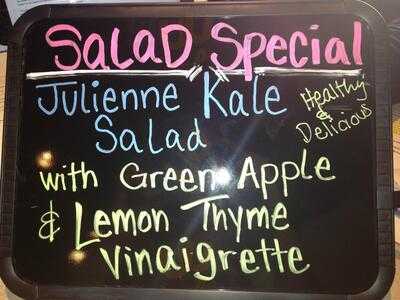 Salad Special
Julienne Kale
Salad
Healthy
&
Delicious
with Green Apple
& Lemon Thyme
Vinaigrette